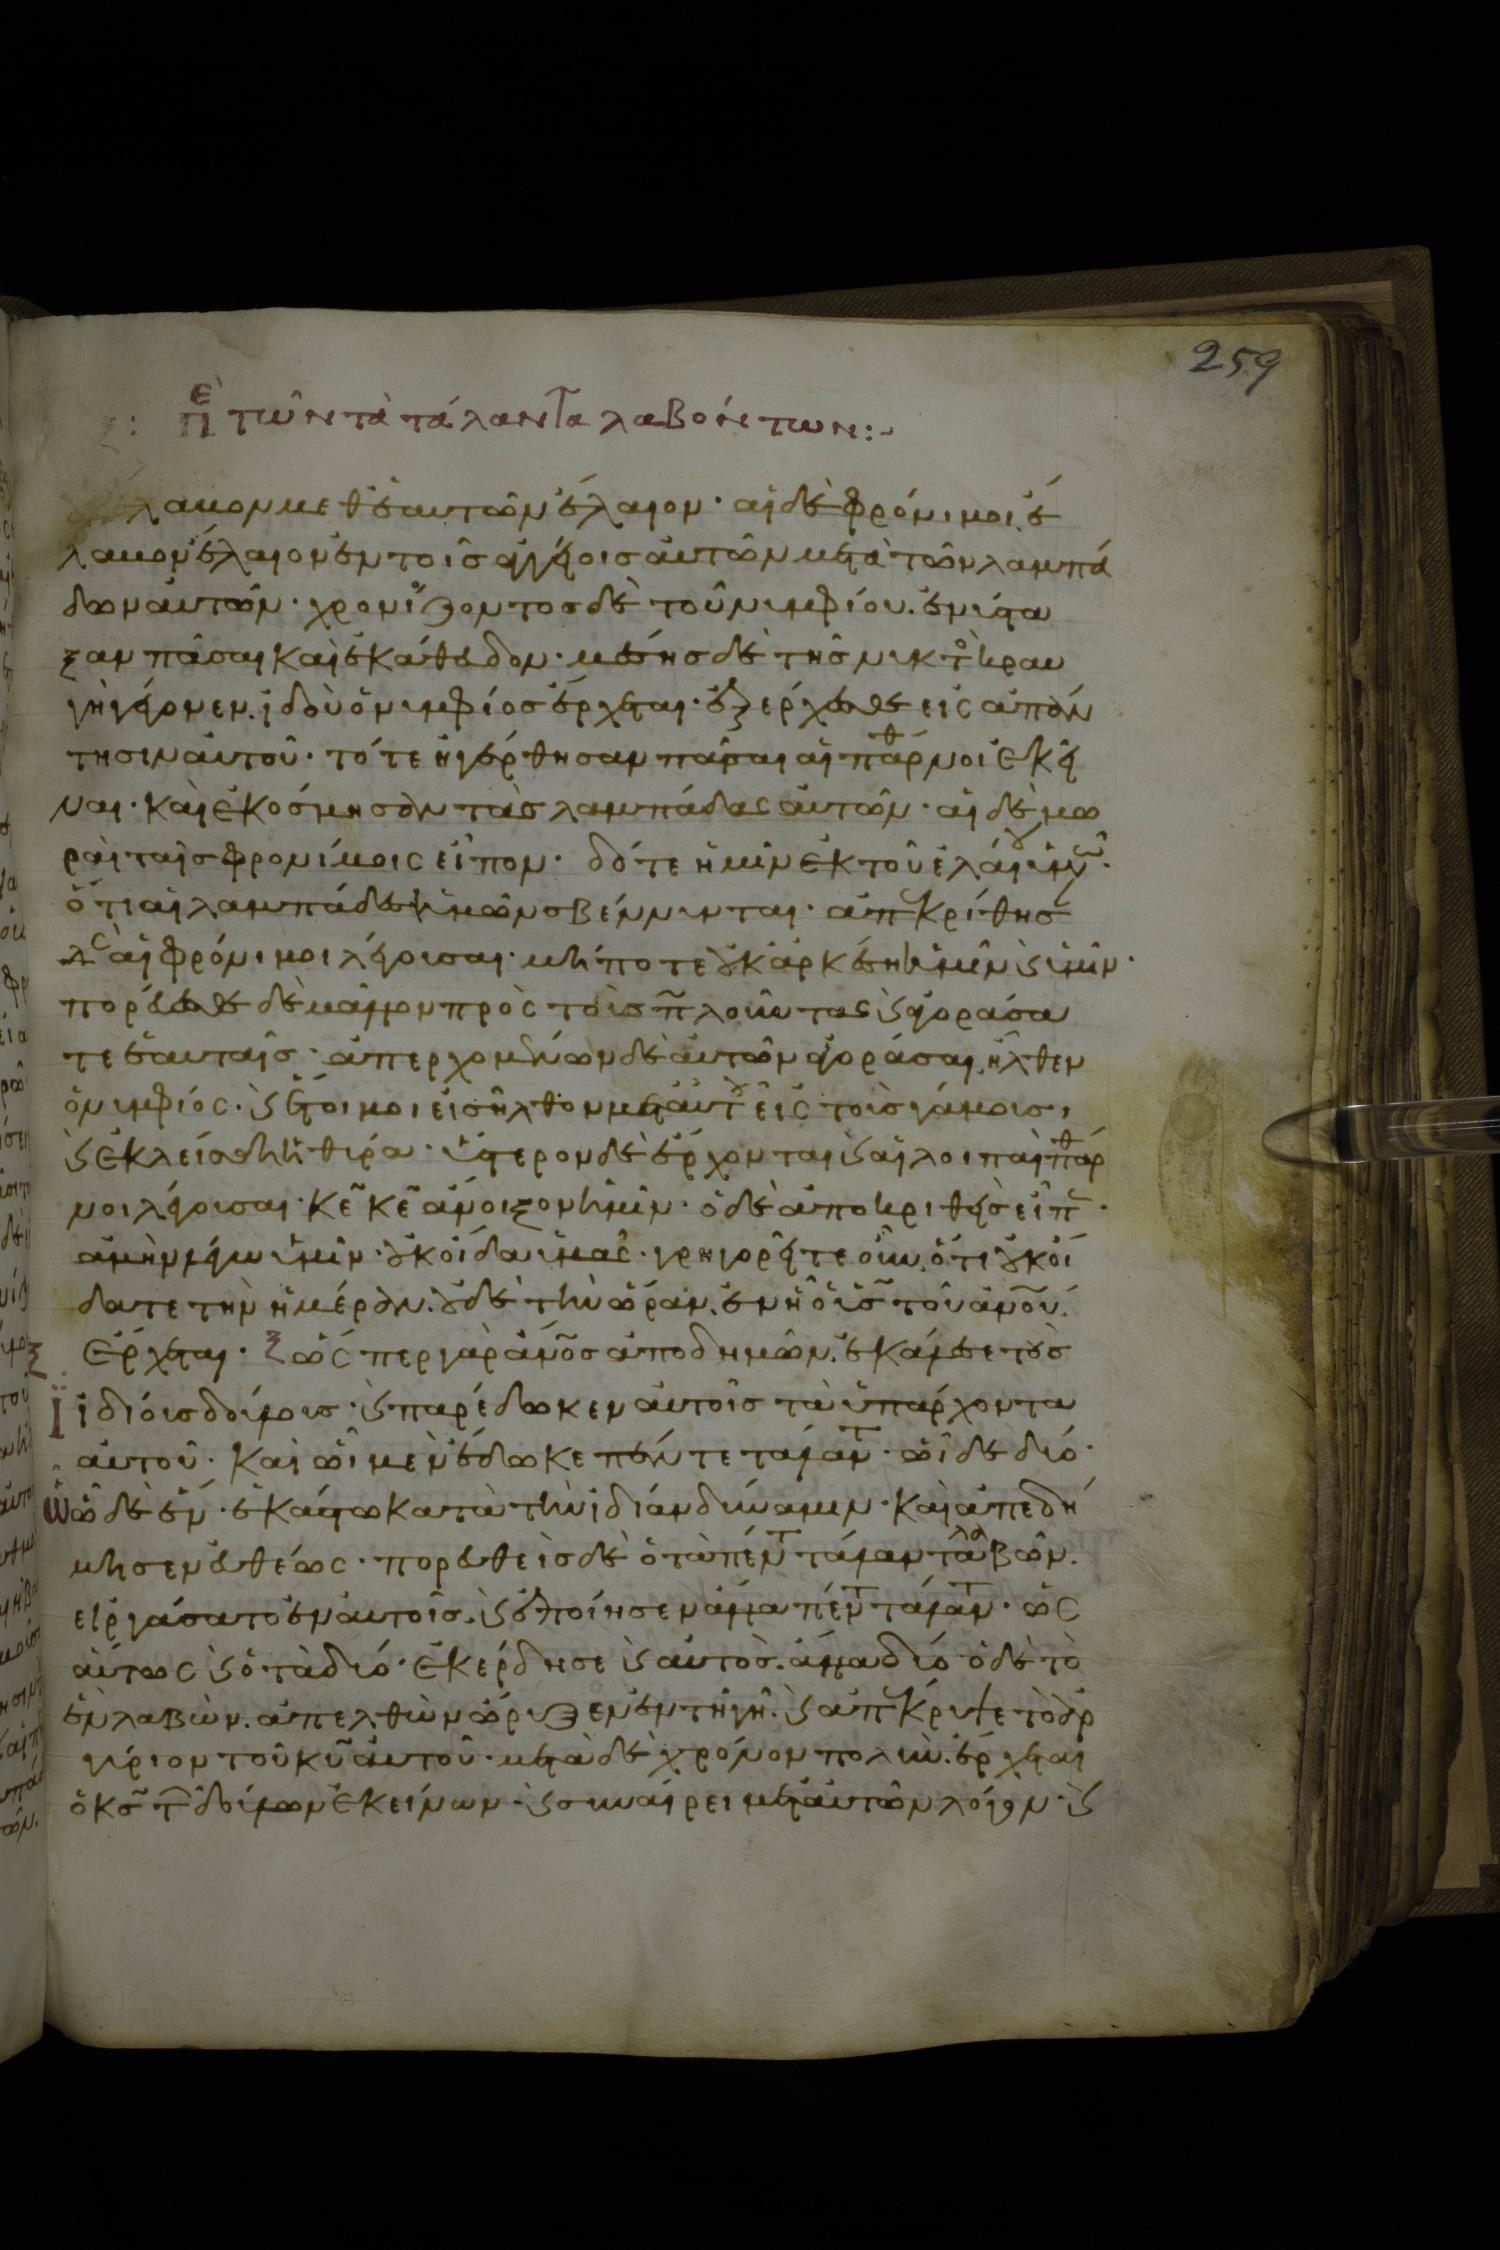 259
πε τῶν τὰ τάλαντα λαβόντων:~
λαβον μεθ ἑαυτῶν ἔλαιον· αἱ δὲ φρόνιμοι ἔ
λαβον ἔλαιον ἐν τοῖς ἀγγείοις αὐτῶν μετὰ τῶν λαμπά
δων αὐτῶν· χρονίζοντος δὲ τοῦ νυμφίου. ἐνύστα
ξαν πᾶσαι καὶ ἐκάθευδον· μέσης δὲ της νυκτὸ κραυ
γὴ γέγονεν. ἰδοὺ ὁ νυμφίος ἔρχεται· ἐξέρχεσθε εἰς ἀπάν
τησιν αὐτοῦ· τότε ἠγέρθησαν πᾶσαι αἱ παρθένοι ἐκεῖ
ναι· καὶ ἐκόσμησαν τὰς λαμπάδας αὐτῶν· αἱ δὲ μω
ραὶ ταῖς φρονίμοις εἶπον· δότε ἡμῖν ἐκ τοῦ ἐλαίου ὑμῶν·
ὅτι αἱ λαμπάδες ἡμῶν σβέννυνται· ἀπεκρίθησ
αν δὲ αἱ φρόνιμοι λέγουσαι· μήποτε οὐκ ἀρκέσῃ ἡμῖν ϗ ὑμῖν·
πορεύεσθε δὲ μᾶλλον πρὸς τοὺς πωλοῦντας ϗ ἀγοράσα
τε ἑαυταῖς· ἀπερχομένων δὲ αὐτῶν ἀγοράσαι, ἦλθεν
ὁ νυμφίος· ϗ ἕτοιμοι εἰσῆλθον μετ αὐτοῦ εἰς τοὺς γάμους,
ϗ ἐκλείσθη ἡ θύρα· ὕστερον δὲ ἔρχονται ϗ αἱ λοιπαὶ παρθέ
νοι λέγουσαι· κε κε ἄνοιξον ἡμῖν· ὁ δὲ ἀποκριθεὶς εἶπεν·
ἀμὴν λέγω ὑμῖν· οὐκ οἶδα ὑμᾶς· γρηγορεῖτε οὖν, ὅτι οὐκ οἴ
δατε τὴν ἡμέραν. οὐδὲ τὴν ὥραν. ἐν ᾗ ὁ υἱς τοῦ ἀνου.
ἔρχεται· ὥς περ γὰρ ἀνος ἀποδημῶν. ἐκάλεσε τοὺς
ἰδίους δούλους· ϗ παρέδωκεν αὐτοῖς τὰ ὑπάρχοντα
αὐτοῦ· καὶ ὧι μὲν ἔδωκε πέντε τάλαντ· ὧι δὲ δύο·
ὧ δὲ ἕν· ἑκάστω κατὰ τὴν ἰδίαν δύναμιν· καὶ ἀπεδή
μησεν εὐθέως· πορευθεὶς δὲ ὁ τὰ πέντ τάλαντα λαβῶν.
εἰργάσατο ἐν αὐτοῖς. ϗ ἐποίησεν ἄλλα πέντ τάλαντ· ὡς
αύτως ϗ ὁ τὰ δύο· ἐκέρδησε ϗ αὐτὸς. ἄλλα δύο· ὁ δὲ τὸ
ἓν λαβὼν. ἀπελθὼν ὤρυξεν ἐν τῆ γῆ. ϗ ἀπέκρυψε τὸ ἀρ
γύριον τοῦ κυ αὐτοῦ· μετὰ δὲ χρόνον πολὺν. ἔρχεται
ὁ κς τῶν δούλων ἐκείνων· ϗ συναίρει μετ αὐτῶν λόγον· ϗ